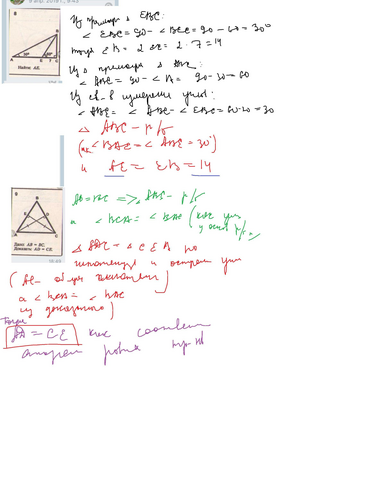 8
B
30° 60°
A E 7 C
Найти: AE.
Из прямоуг Δ EBC:
< EBC = 90 - < BEC = 90 - 60 = 30°
тогда EB = 2 EC = 2 · 7 = 14
Из Δ прямоуг Δ ABC:
< ABC = 90 - < A = 90 - 30 = 60
Из св-в измерения углов:
< ABE = < ABC - < EBC = 60 - 30 = 30
Δ ABE - р/б
(так < BAE = < ABE = 30°)
и AE = EB = 14
8
B
E D
A C
Дано: AB = BC.
Доказать: AD = CE.
AB = BC => Δ ABC - р/б
а < BCA = < BAC (как углы
у основ р/б)
Δ ADC = Δ CEA по
гипотенузе и острому углу
(AC - общая гипотенуза
а < BCA = < BAC
из доказанного)
Тогда
AD = CE как соответ
сторон равных тр-ов